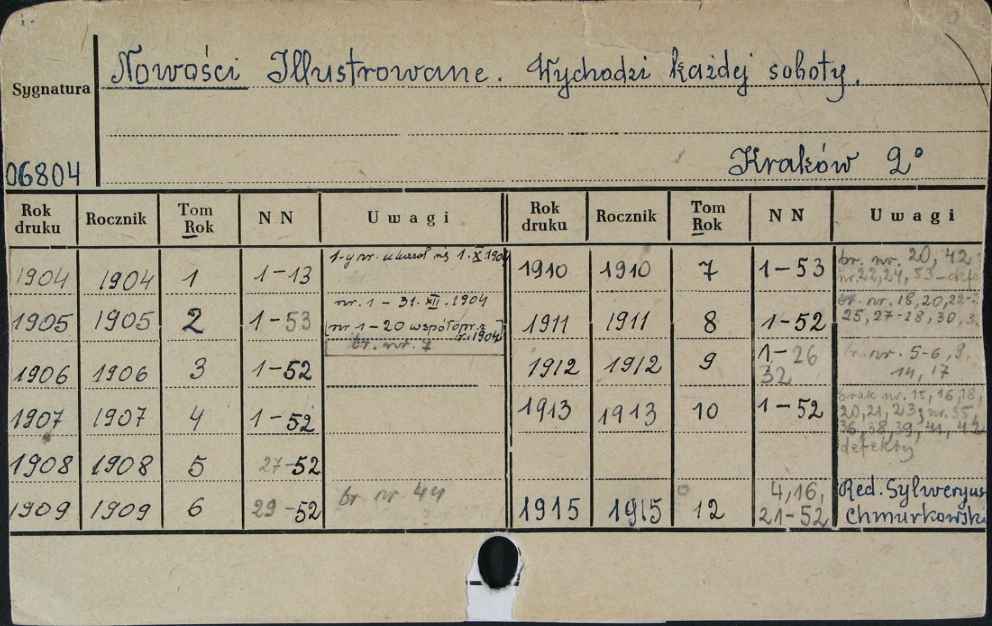 Nowości Illustrowane. Wychodzi każdej soboty.
Sygnatura
06804
Kraków 2°
Rok druku Rocznik Tom Rok N N Uwagi Rok druku Rocznik Tom Rok N N Uwagi
1904 1904 1 1-13 1-y nr. ukazał się 1.X.1904
1905 1905 2 1-53 nr. 1-31.XII.1904
[nr 1-20 współopr. z r. 1904]
br. nr. 7
1906 1906 3 1-52
1907 1907 4 1-52
1908 1908 5 27-52
1909 1909 6 29-52 br nr 44
1910 1910 7 1-53 br. nr. 20, 42
nr. 22, 24, 53-
1911 1911 8 1-52 br. nr. 18, 20,
25, 27-28, 30,
1912 1912 9 1-26
32 br. nr. 5-6, 9,
14, 17
1913 1913 10 1-52 brak nr. 15, 16, 18,
20, 21, 23; nr. 35,
36, 38, 39, 41, 42
defekty
1915 1915 12 4, 16,
21-52 Red. Sylweryusz
Chmurkowski